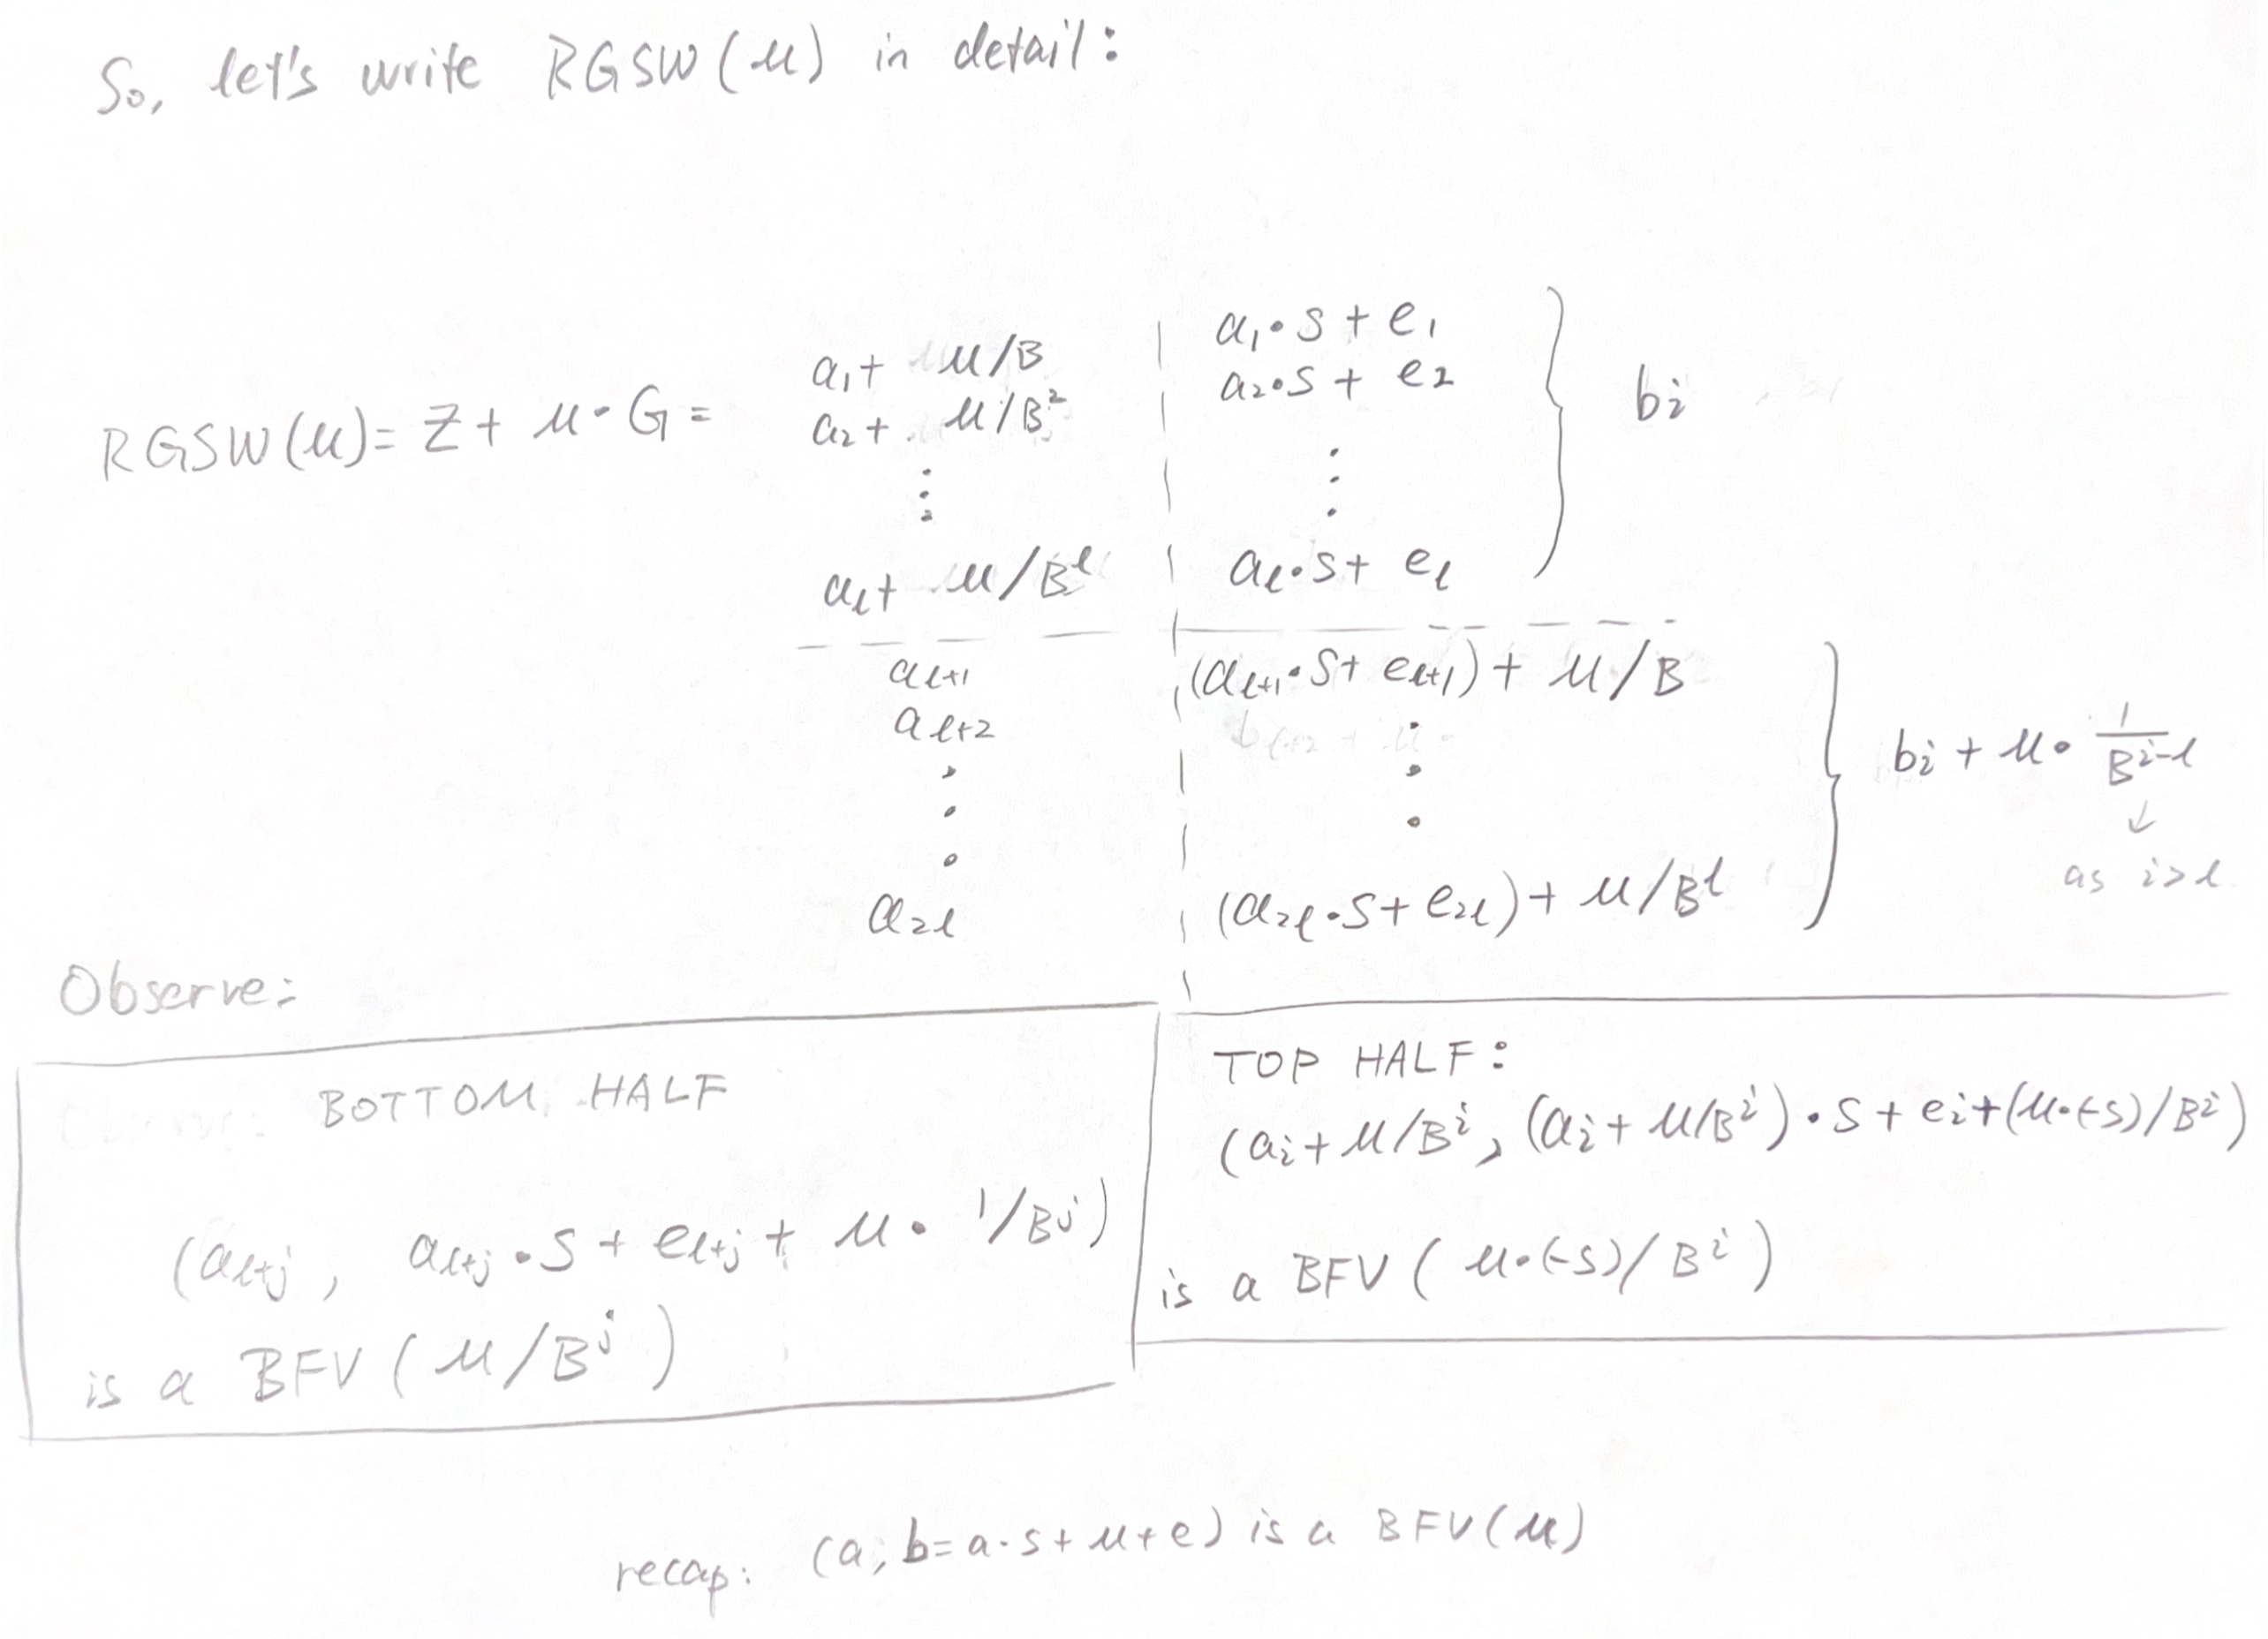 So, let's write RGSW(μ) in detail:
RGSW(μ) = Z + μ · G =
a₁ + μ/B | a₁·s + e₁
a₂ + μ/B² | a₂·s + e₂
⋮ | ⋮
aₗ + μ/Bˡ | aₗ·s + eₗ
} bᵢ
aₗ₊₁ | (aₗ₊₁·s + eₗ₊₁) + μ/B
aₗ₊₂ | ⋮
a₂ₗ | (a₂ₗ·s + e₂ₗ) + μ/Bˡ
} bᵢ + μ · 1/Bⁱ⁻ˡ
↓
as i>l
Observe:
BOTTOM HALF
(aₗ₊ⱼ, aₗ₊ⱼ·s + eₗ₊ⱼ + μ · 1/Bʲ)
is a BFV(μ/Bʲ)
TOP HALF:
(aᵢ + μ/Bⁱ, (aᵢ + μ/Bⁱ)·s + eᵢ + (μ·(-s)/Bⁱ)
is a BFV(μ·(-s)/Bⁱ)
recap: (a, b = a·s + μ + e) is a BFV(μ)